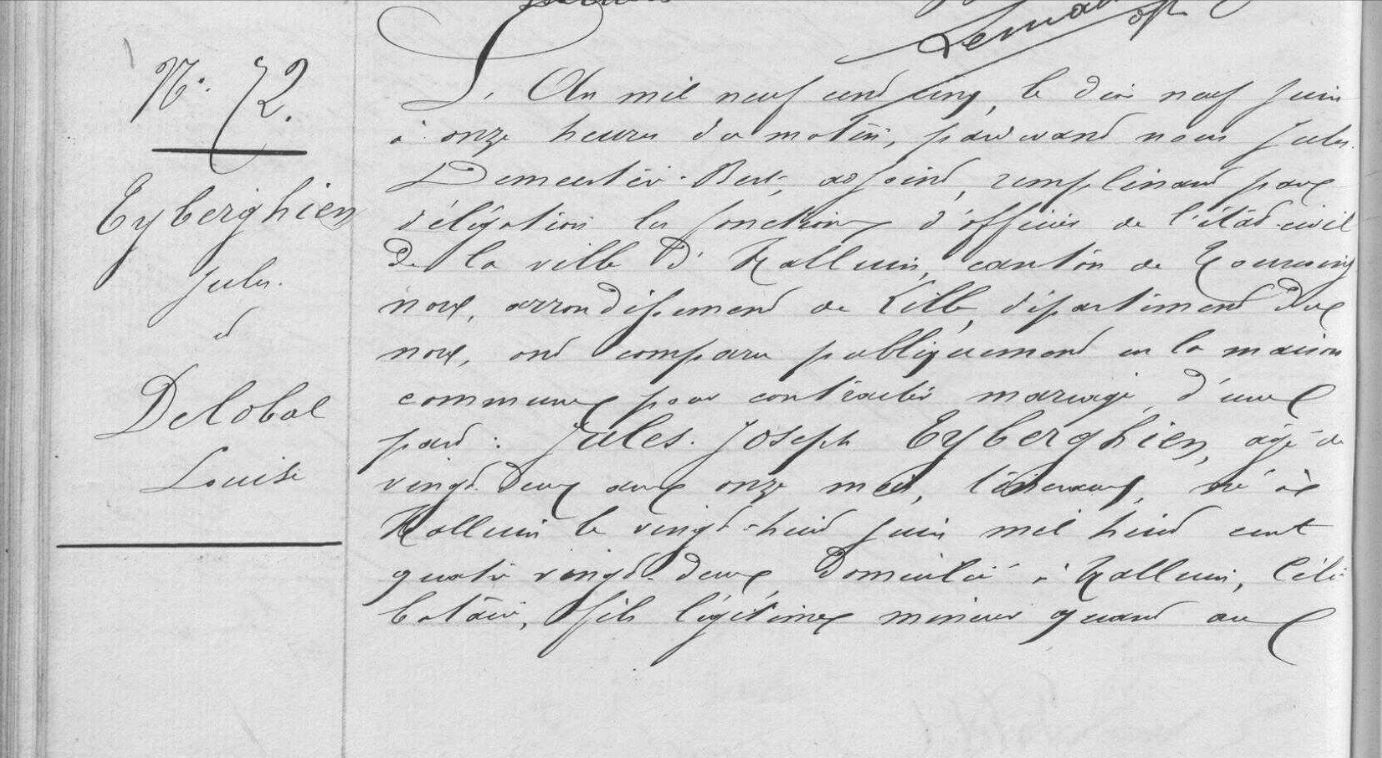 N°. 72.
Eyberghien
Jules.
et
Delobal
Louise
L'An mil neuf cent cinq, le dix neuf Juin
à onze heures du matin, pardevant nous Jules
Demeestère-Bert, adjoint, remplissant par
délégation les fonctions d'officier de l'état-civil
de la ville d'Halluin, canton de Tourcoing
nord, arrondissement de Lille, département du
nord, ont comparu publiquement en la maison
commune pour contracter mariage, d'une
part: Jules-Joseph Eyberghien, âgé de
vingt deux ans onze mois, né à
Halluin le vingt-huit Juin mil huit cent
quatre vingt-deux, domicilié à Halluin, céli-
bataire, fils légitime mineur quant au